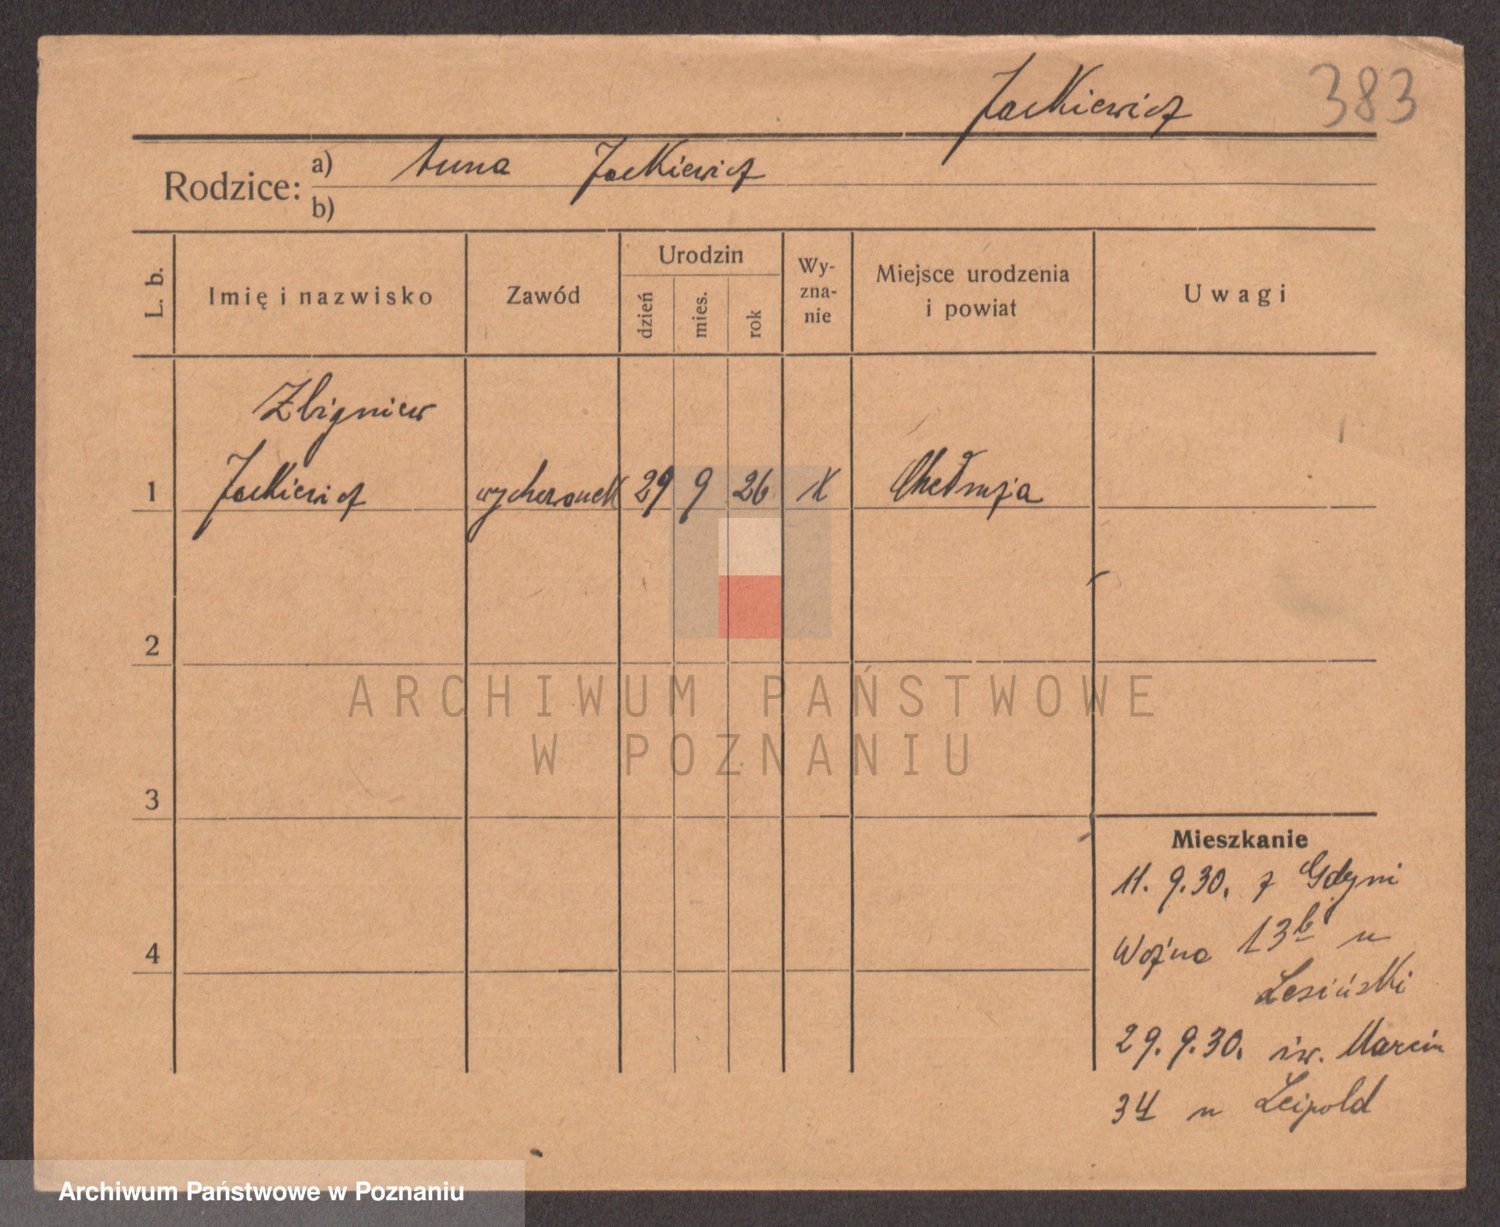 Jackiewicz 383
Rodzice: a) Anna Jackiewicz
b)
L. b. Imię i nazwisko Zawód Urodzin dzień mies. rok Wy-zna-nie Miejsce urodzenia i powiat Uwagi
Zbigniew
1 Jackiewicz wychowanek 29 9 26 K Chełmża
2
3
4
ARCHIWUM PAŃSTWOWE
W POZNANIU
Mieszkanie
11. 9. 30. z Gdyni
Woźna 13b u
Lesiński
29. 9. 30. św. Marcin
34 u Leipold
Archiwum Państwowe w Poznaniu